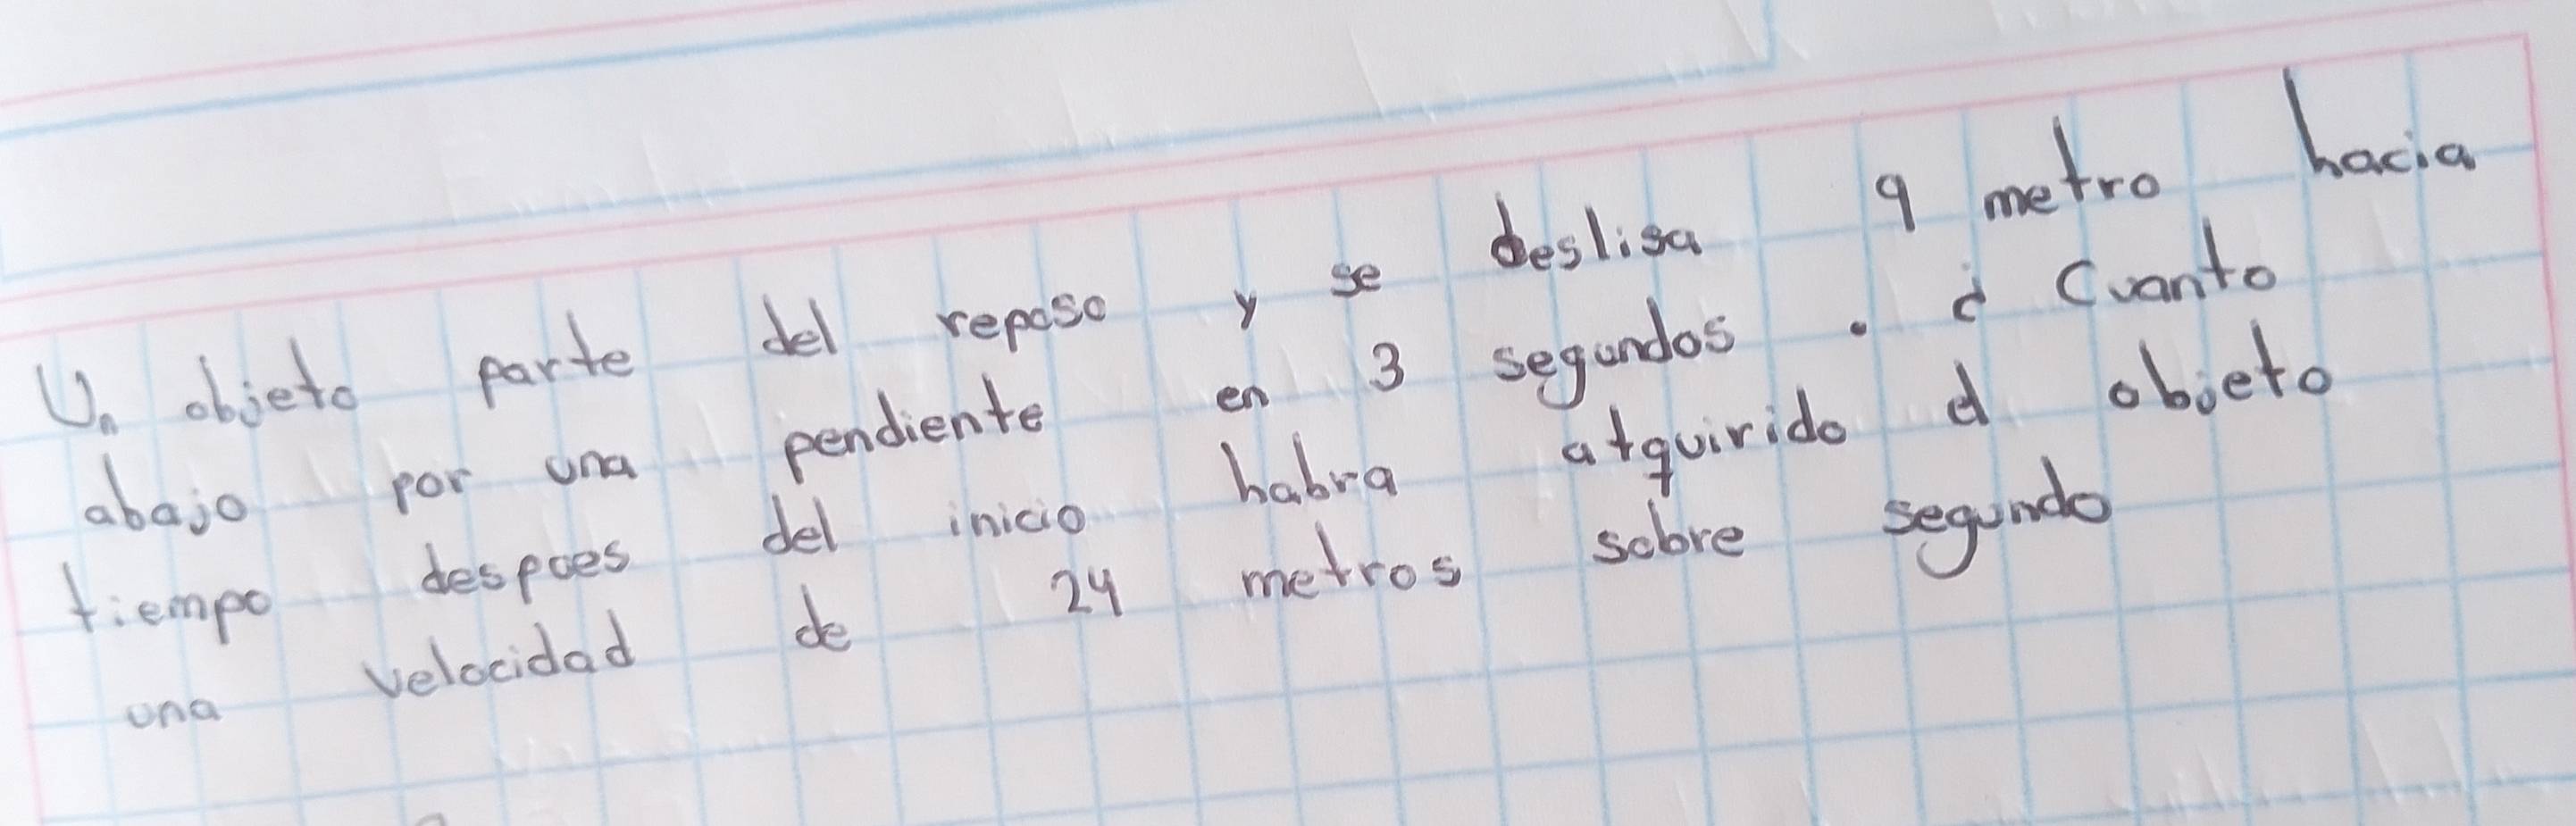 Un objeto parte del reposo y se deslisa 9 metro hacia
abajo por una pendiente en 3 segundos . ¿ Cuanto
tiempo despues del inicio habra atquirido el objeto
una velocidad de 24 metros sobre segundo